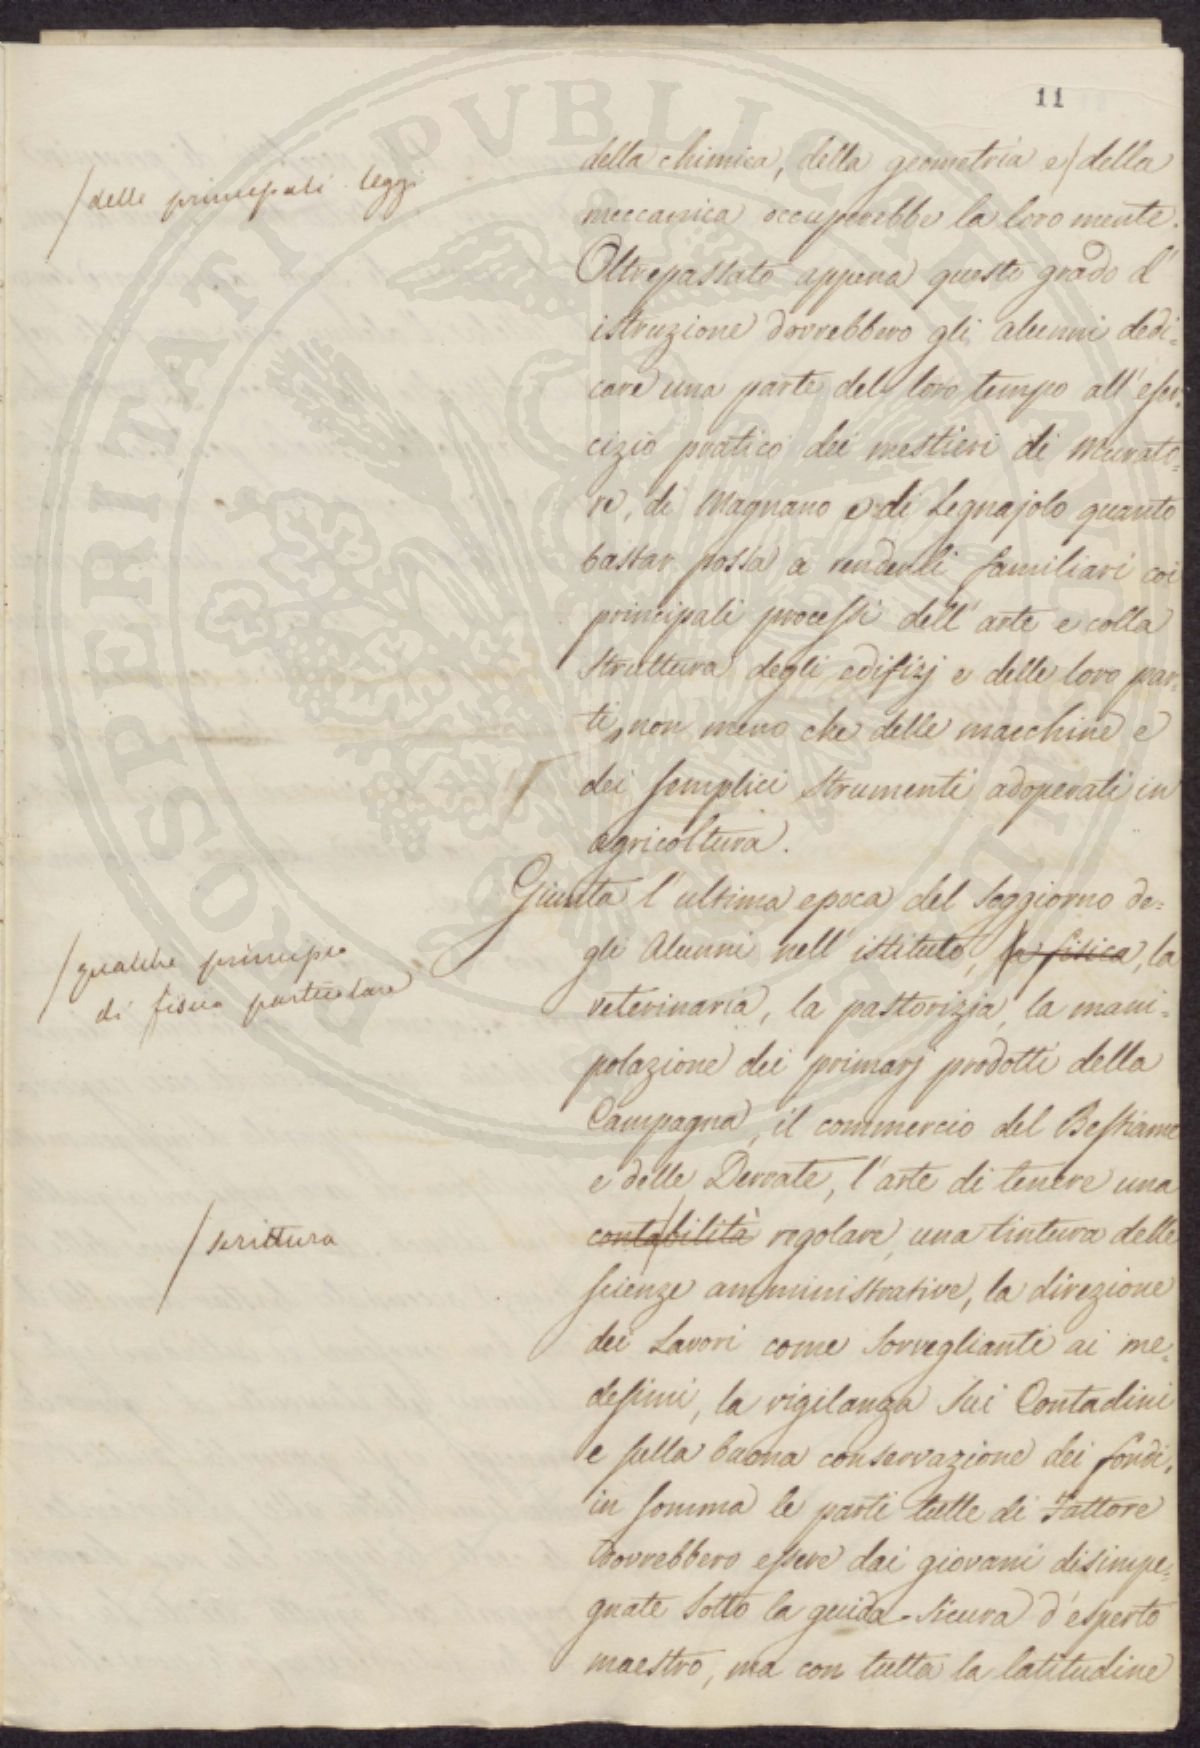 11
/ delle principali leggi
della chimica, della geometria e / della
meccanica occuperebbe la loro mente.
Oltrepassato appena questo grado d'
istruzione dovrebbero gli alunni dedi=
care una parte del loro tempo all'eser=
cizio pratico dei mestieri di Murato=
re, di Magnano e di Legnajolo quanto
bastar possa a renderli familiari coi
principali processi dell'arte e colla
struttura degli edifizj e delle loro par=
ti, non meno che delle macchine e
dei semplici strumenti adoperati in
agricoltura.
Giunta l'ultima epoca del soggiorno de=
gli Alunni nell'istituto, / la fisica, la
/ qualche principio
di fisica particolare
veterinaria, la pastorizia, la mani=
polazione dei primarj prodotti della
Campagna, il commercio del Bestiame
e delle Derrate, l'arte di tenere una
/ scrittura
contabilità regolare, una tintura delle
scienze amministrative, la direzione
dei Lavori come sorveglianti ai me=
desimi, la vigilanza sui Contadini
e sulla buona conservazione dei fondi,
in somma le parti tutte di Fattore
dovrebbero essere dai giovani disimpe=
gnate sotto la guida sicura d'esperto
maestro, ma con tutta la latitudine
PROSPERITATI PUBLICAE